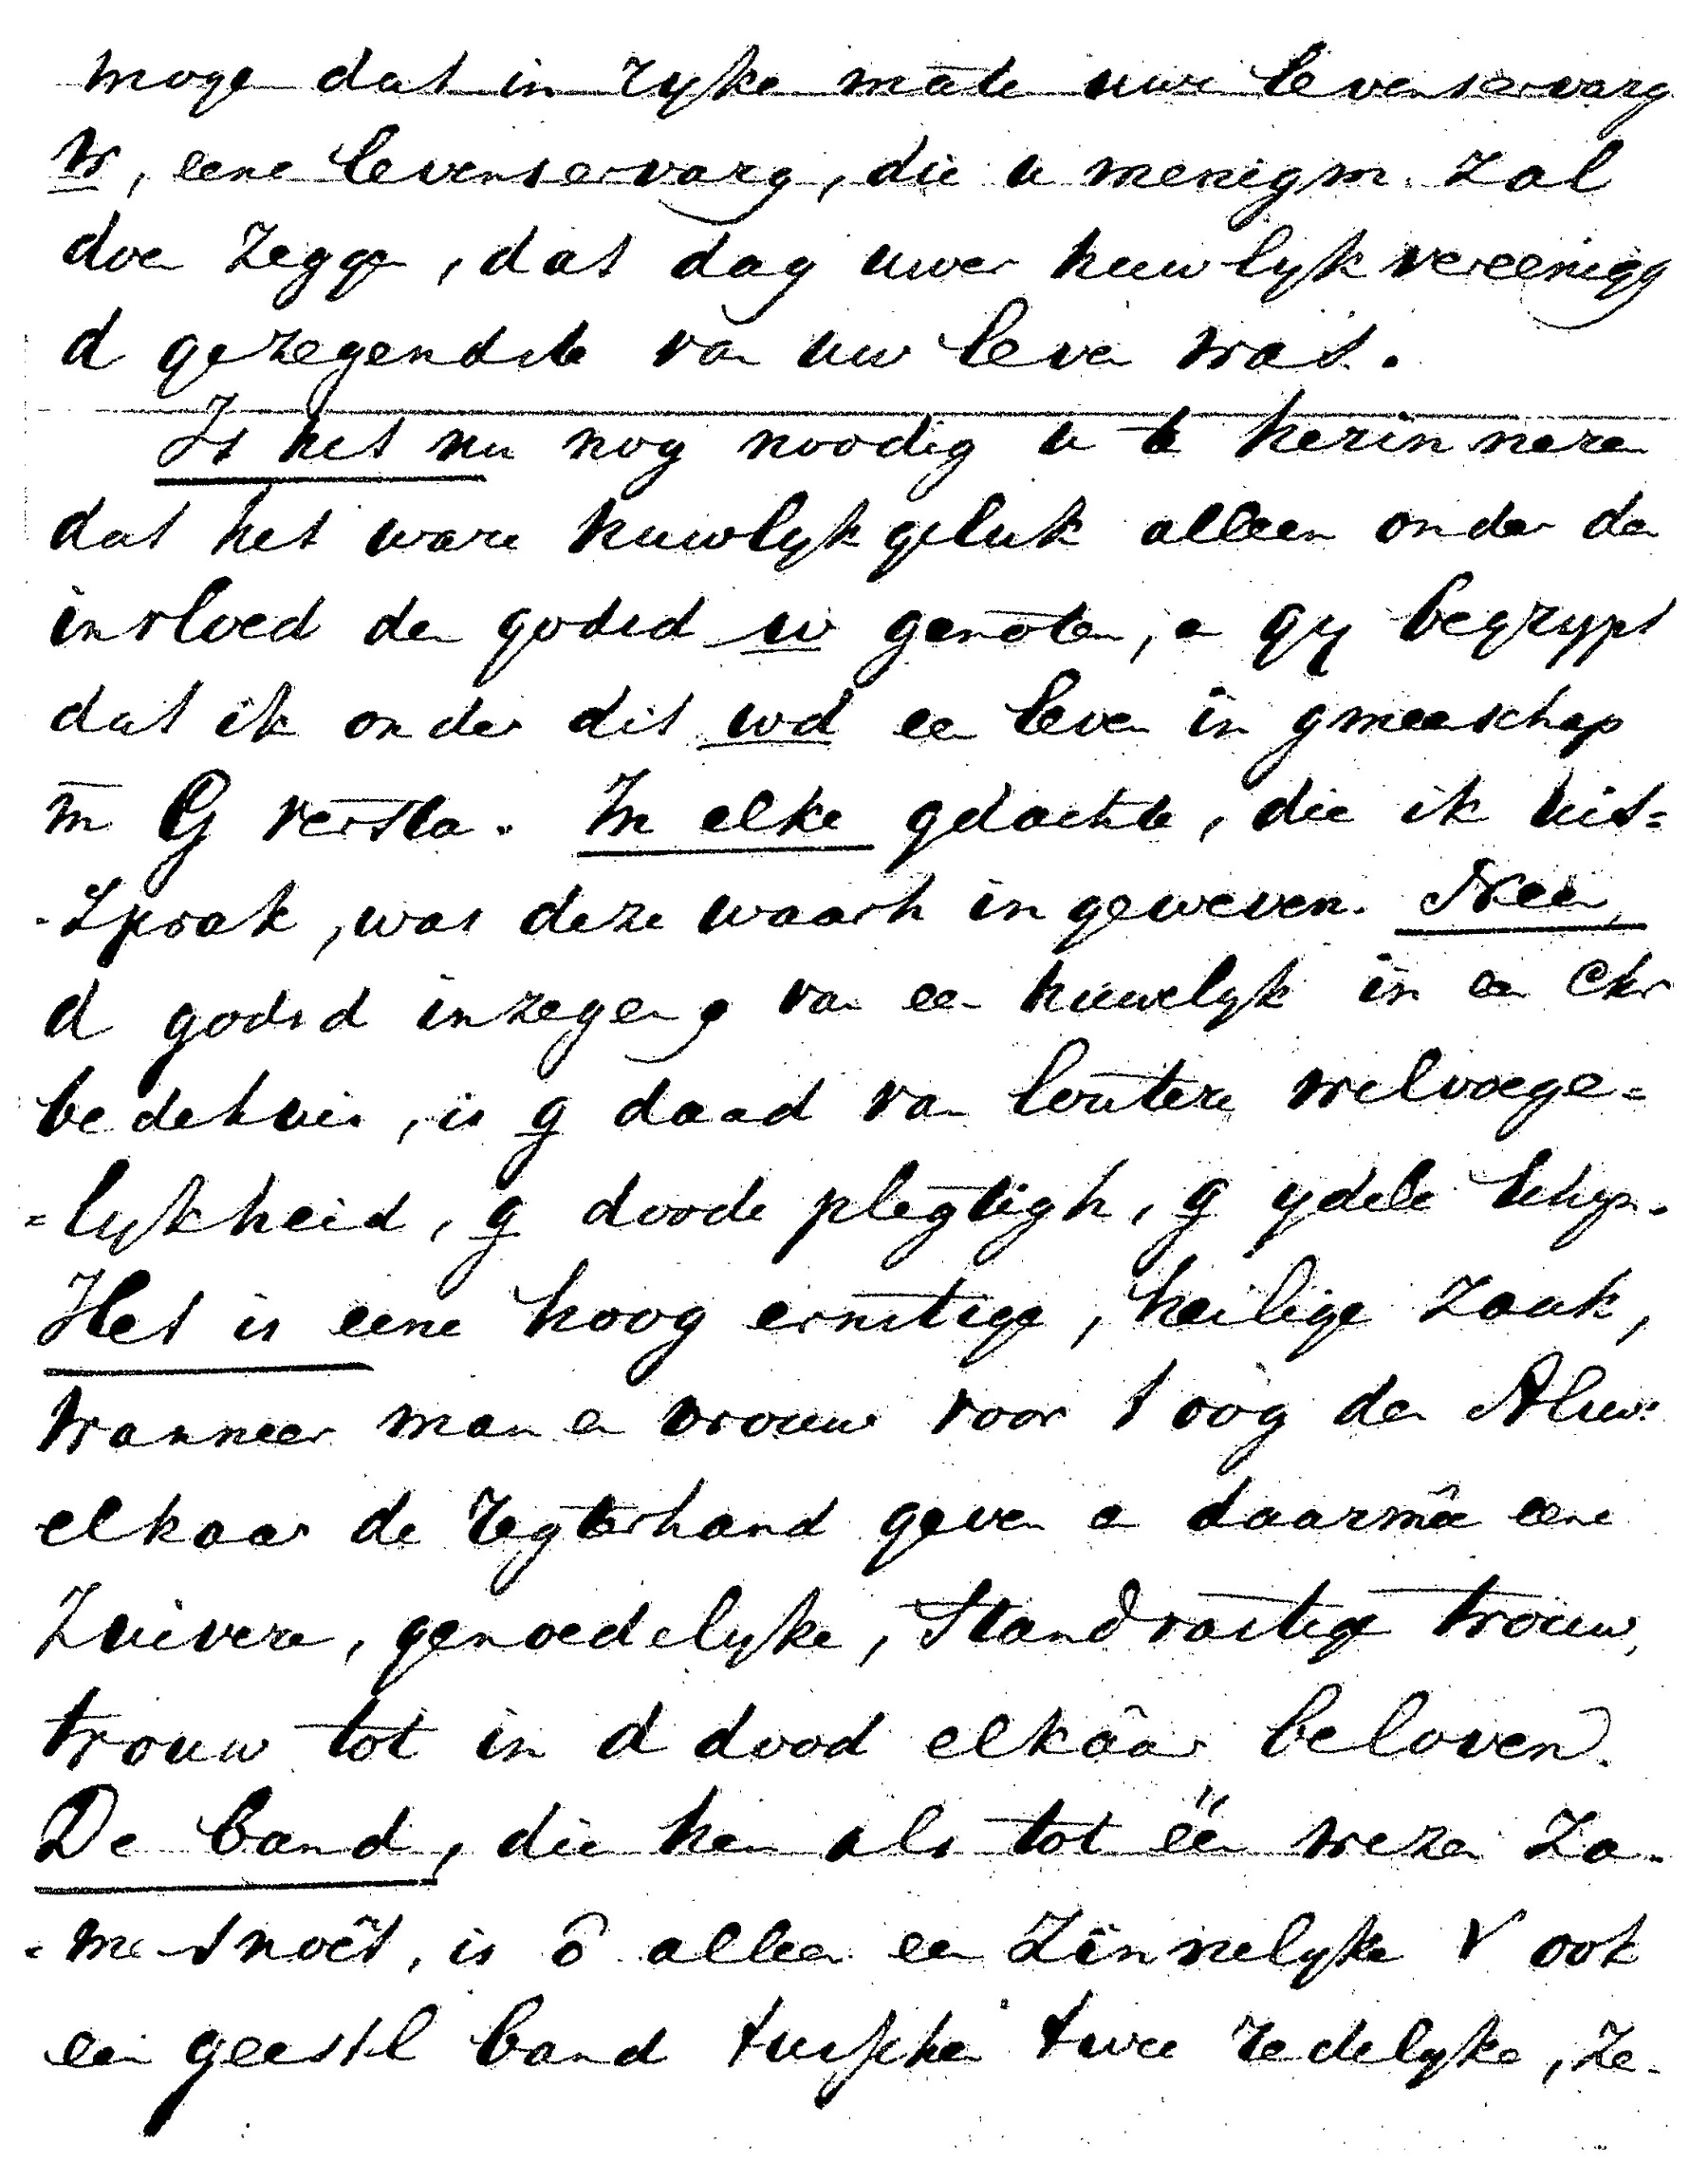 moge dat in ryke mate uwe levenservarg
w, eene levenservarg, die u menigm. zal
doen zeggen, dat dag uwer huwlyk vereenigg
d gezegendste van uw leven was.
Is het nu nog noodig u te herinneren
dat het ware huwlyk geluk alleen onder den
invloed den godsd w genoten, en gy begrypt
dat ik onder dit wd een leven in gmeenschap
m G versta. In elke gdachte, die ik uit=
-sprak, was deze waarh ingeweven. Neen,
d godsd inzegeng van een huwelyk in een Chr
bedehuis, is g daad van loutere welvoege=
=lykheid, g doode plegtigh, g ydele schyn.
Het is eene hoog ernstige, heilige zaak,
wanneer man en vrouw voor t oog den Aluw:
elkaar de regterhand geven en daarmêe eene
zuivere, genoedelyke, standvastige trouw,
trouw tot in d dood elkâar beloven.
De band, die hen als tot één wezen za-
-mensnoêt, is ô alleen een zinnelyke v ook
een geestel band tusschen twee redelyke, ze-